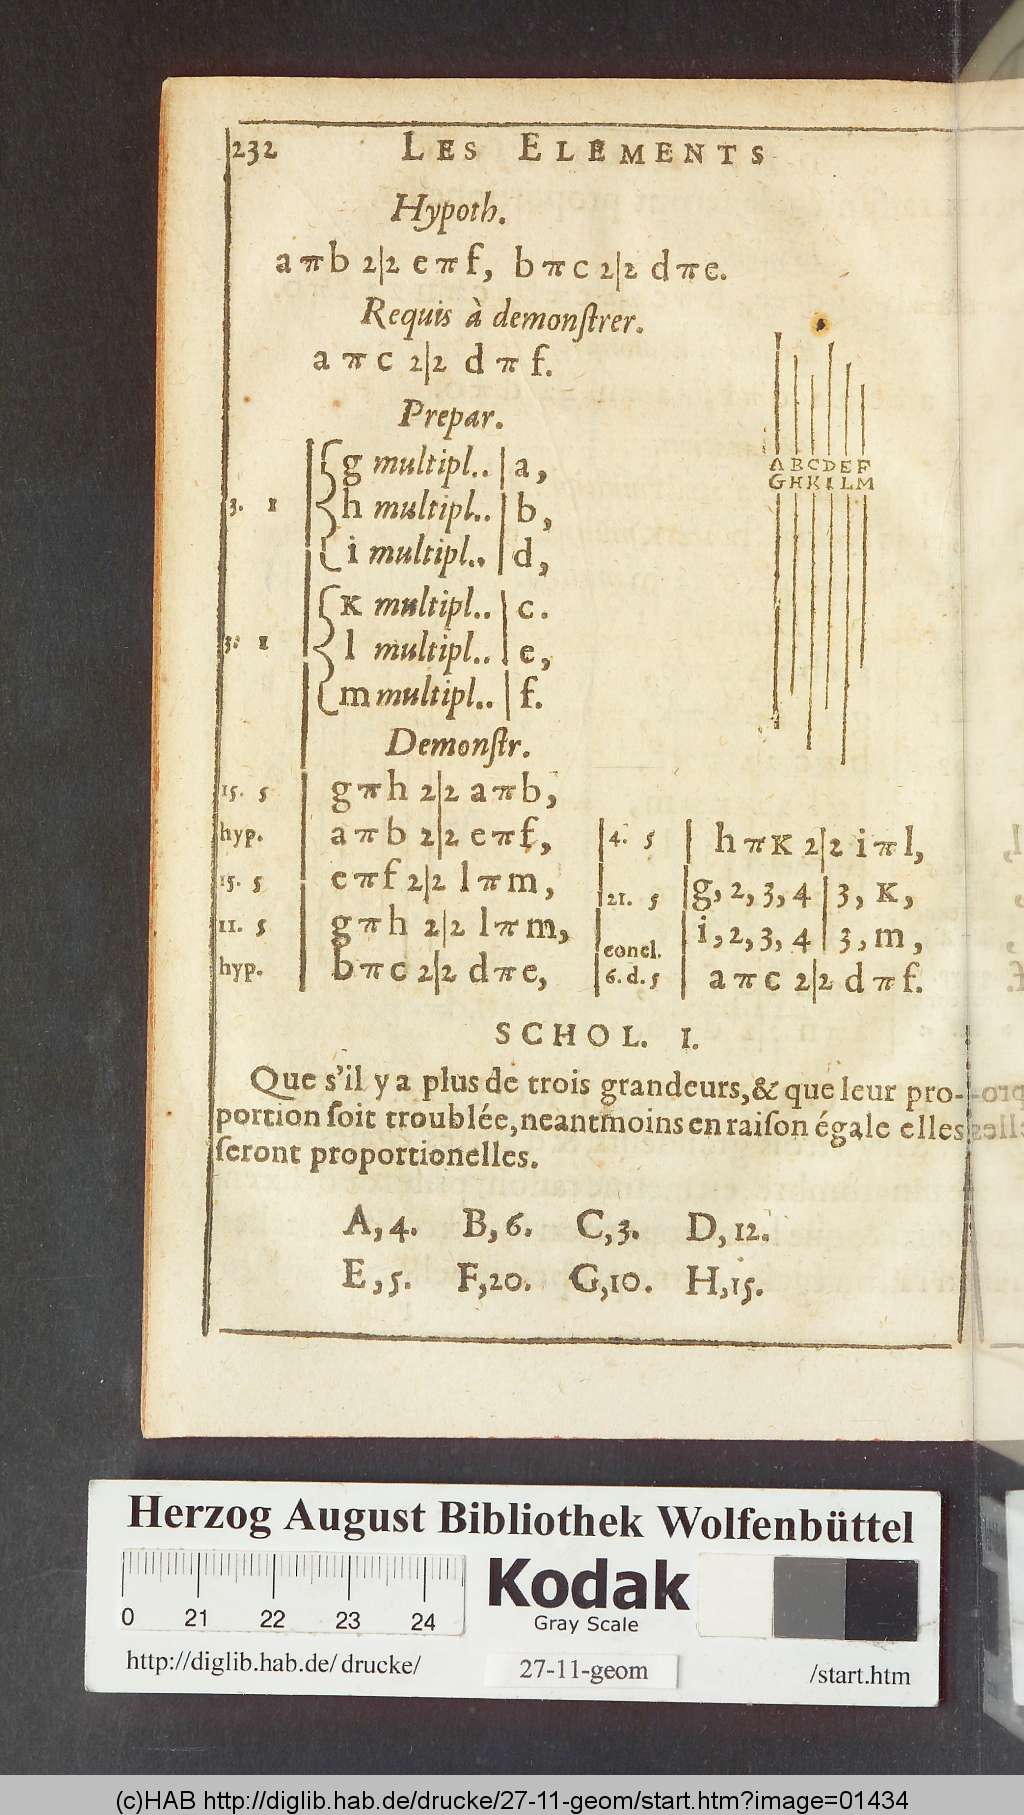 232 LES ELEMENTS
Hypoth.
a π b 2|2 e π f, b π c 2|2 d π e.
Requis à demonſtrer.
a π c 2|2 d π f.
Prepar.
g multipl.. | a,
3. 1 h multipl.. | b,
i multipl.. | d,
K multipl.. | c.
3. 1 l multipl.. | e,
m multipl.. | f.
A B C D E F
G H K I L M
Demonſtr.
15. 5 | g π h 2|2 a π b,
hyp. | a π b 2|2 e π f,
15. 5 | e π f 2|2 l π m,
11. 5 | g π h 2|2 l π m,
hyp. | b π c 2|2 d π e,
4. 5 | h π K 2|2 i π l,
21. 5 | g, 2, 3, 4 | 3, K,
i, 2, 3, 4 | 3, m,
concl.
6. d. 5 | a π c 2|2 d π f.
SCHOL. I.
Que s'il y a plus de trois grandeurs, & que leur pro-
portion ſoit troublée, neantmoins en raiſon égale elles
ſeront proportionelles.
A, 4. B, 6. C, 3. D, 12.
E, 5. F, 20. G, 10. H, 15.
Herzog August Bibliothek Wolfenbüttel
0 21 22 23 24
Kodak
Gray Scale
http://diglib.hab.de/drucke/ 27-11-geom /start.htm
(c)HAB http://diglib.hab.de/drucke/27-11-geom/start.htm?image=01434